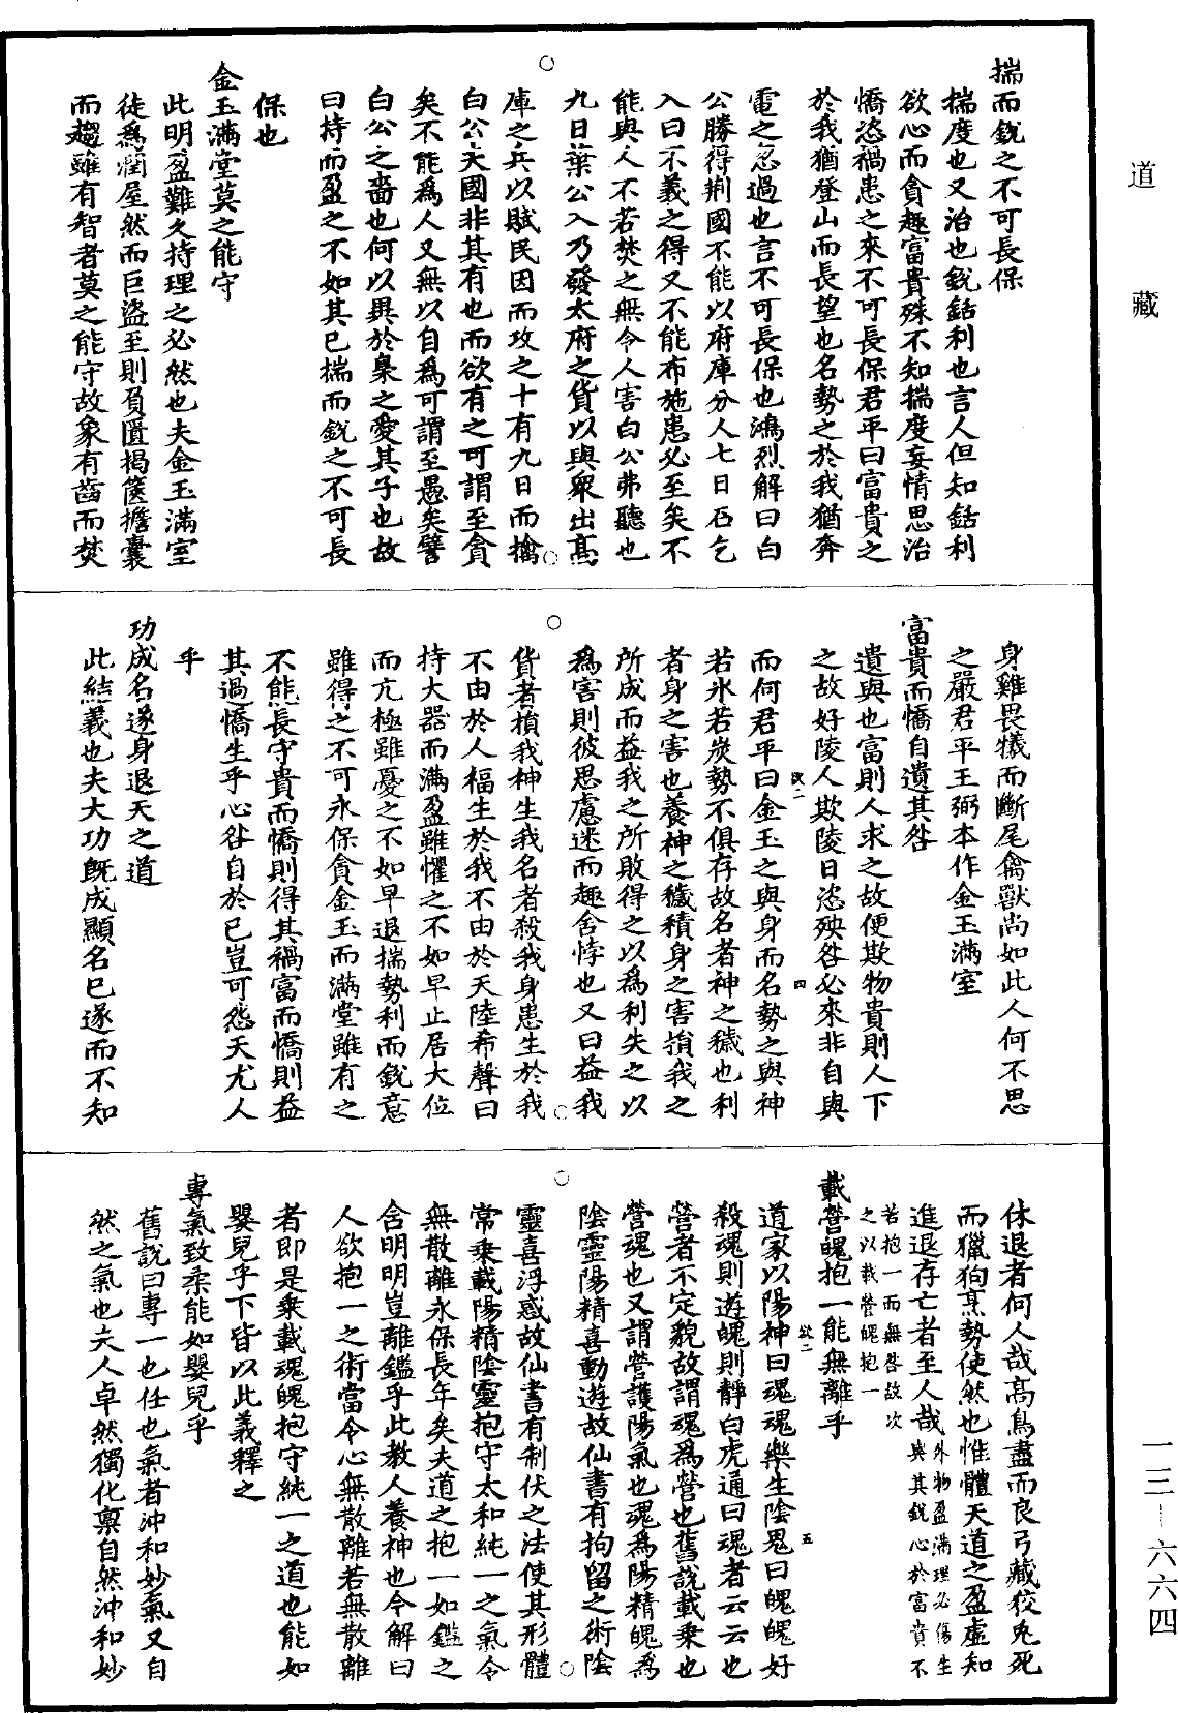 道藏
揣而銳之不可長保
揣度也又治也銳銛利也言人但知銛利
欲心而貪趣富貴殊不知揣度妄情思治
憍恣禍患之來不可長保君平曰富貴之
於我猶登山而長望也名勢之於我猶奔
電之忽過也言不可長保也鴻烈解曰白
公勝得荆國不能以府庫分人七日石乞
入曰不義之得又不能布施患必至矣不
能與人不若焚之無令人害白公弗聽也
九日葉公入乃發太府之貨以與眾出高
庫之兵以賦民因而攻之十有九日而擒
白公夫國非其有也而欲有之可謂至貪
矣不能為人又無以自為可謂至愚矣譬
白公之嗇也何以異於梟之愛其子也故
曰持而盈之不如其已揣而銳之不可長
保也
金玉滿堂莫之能守
此明盈難久持理之必然也夫金玉滿室
徒為潤屋然而巨盜至則負匱揭篋擔囊
而趨雖有智者莫之能守故象有齒而焚
身雞畏犧而斷尾禽獸尚如此人何不思
之嚴君平王弼本作金玉滿室
富貴而憍自遺其咎
遺與也富則人求之故便欺物貴則人下
之故好陵人欺陵日恣殃咎必來非自與
而何君平曰金玉之與身而名勢之與神
若氷若炭勢不俱存故名者神之穢也利
者身之害也養神之穢積身之害損我之
所成而益我之所敗得之以為利失之以
為害則彼思慮迷而趣舍悖也又曰益我
貨者損我神生我名者殺我身患生於我
不由於人福生於我不由於天陸希聲曰
持大器而滿盈雖懼之不如早止居大位
而亢極雖憂之不如早退揣勢利而銳意
雖得之不可永保貪金玉而滿堂雖有之
不能長守貴而憍則得其禍富而憍則益
其過憍生乎心咎自於己豈可怨天尤人
乎
功成名遂身退天之道
此結義也夫大功既成顯名已遂而不知
休退者何人哉高鳥盡而良弓藏狡兔死
而獵狗烹勢使然也惟體天道之盈虛知
進退存亡者至人哉外物盈滿理必傷生
與其銳心於富貴不
若抱一而無咎故次
之以載營魄抱一
載營魄抱一能無離乎
道家以陽神曰魂魂樂生陰鬼曰魄魄好
殺魂則遊魄則靜白虎通曰魂者云云也
營者不定貌故謂魂為營也舊說載乗也
營魂也又謂營護陽氣也魂為陽精魄為
陰靈陽精喜動遊故仙書有拘留之術陰
靈喜浮惑故仙書有制伏之法使其形體
常乗載陽精陰靈抱守太和純一之氣令
無散離永保長年矣夫道之抱一如鑑之
含明明豈離鑑乎此教人養神也今解曰
人欲抱一之術當令心無散離若無散離
者即是乗載魂魄抱守純一之道也能如
嬰兒乎下皆以此義釋之
專氣致柔能如嬰兒乎
舊說曰專一也任也氣者沖和妙氣又自
然之氣也夫人卓然獨化禀自然沖和妙
一三—六六四